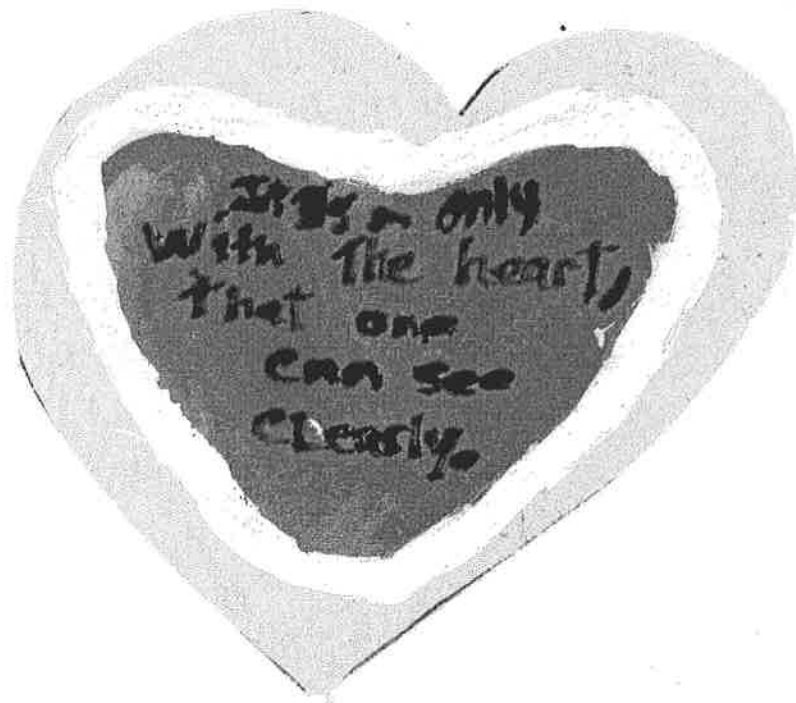 It is only
with The heart,
that one
can see
cLearly.